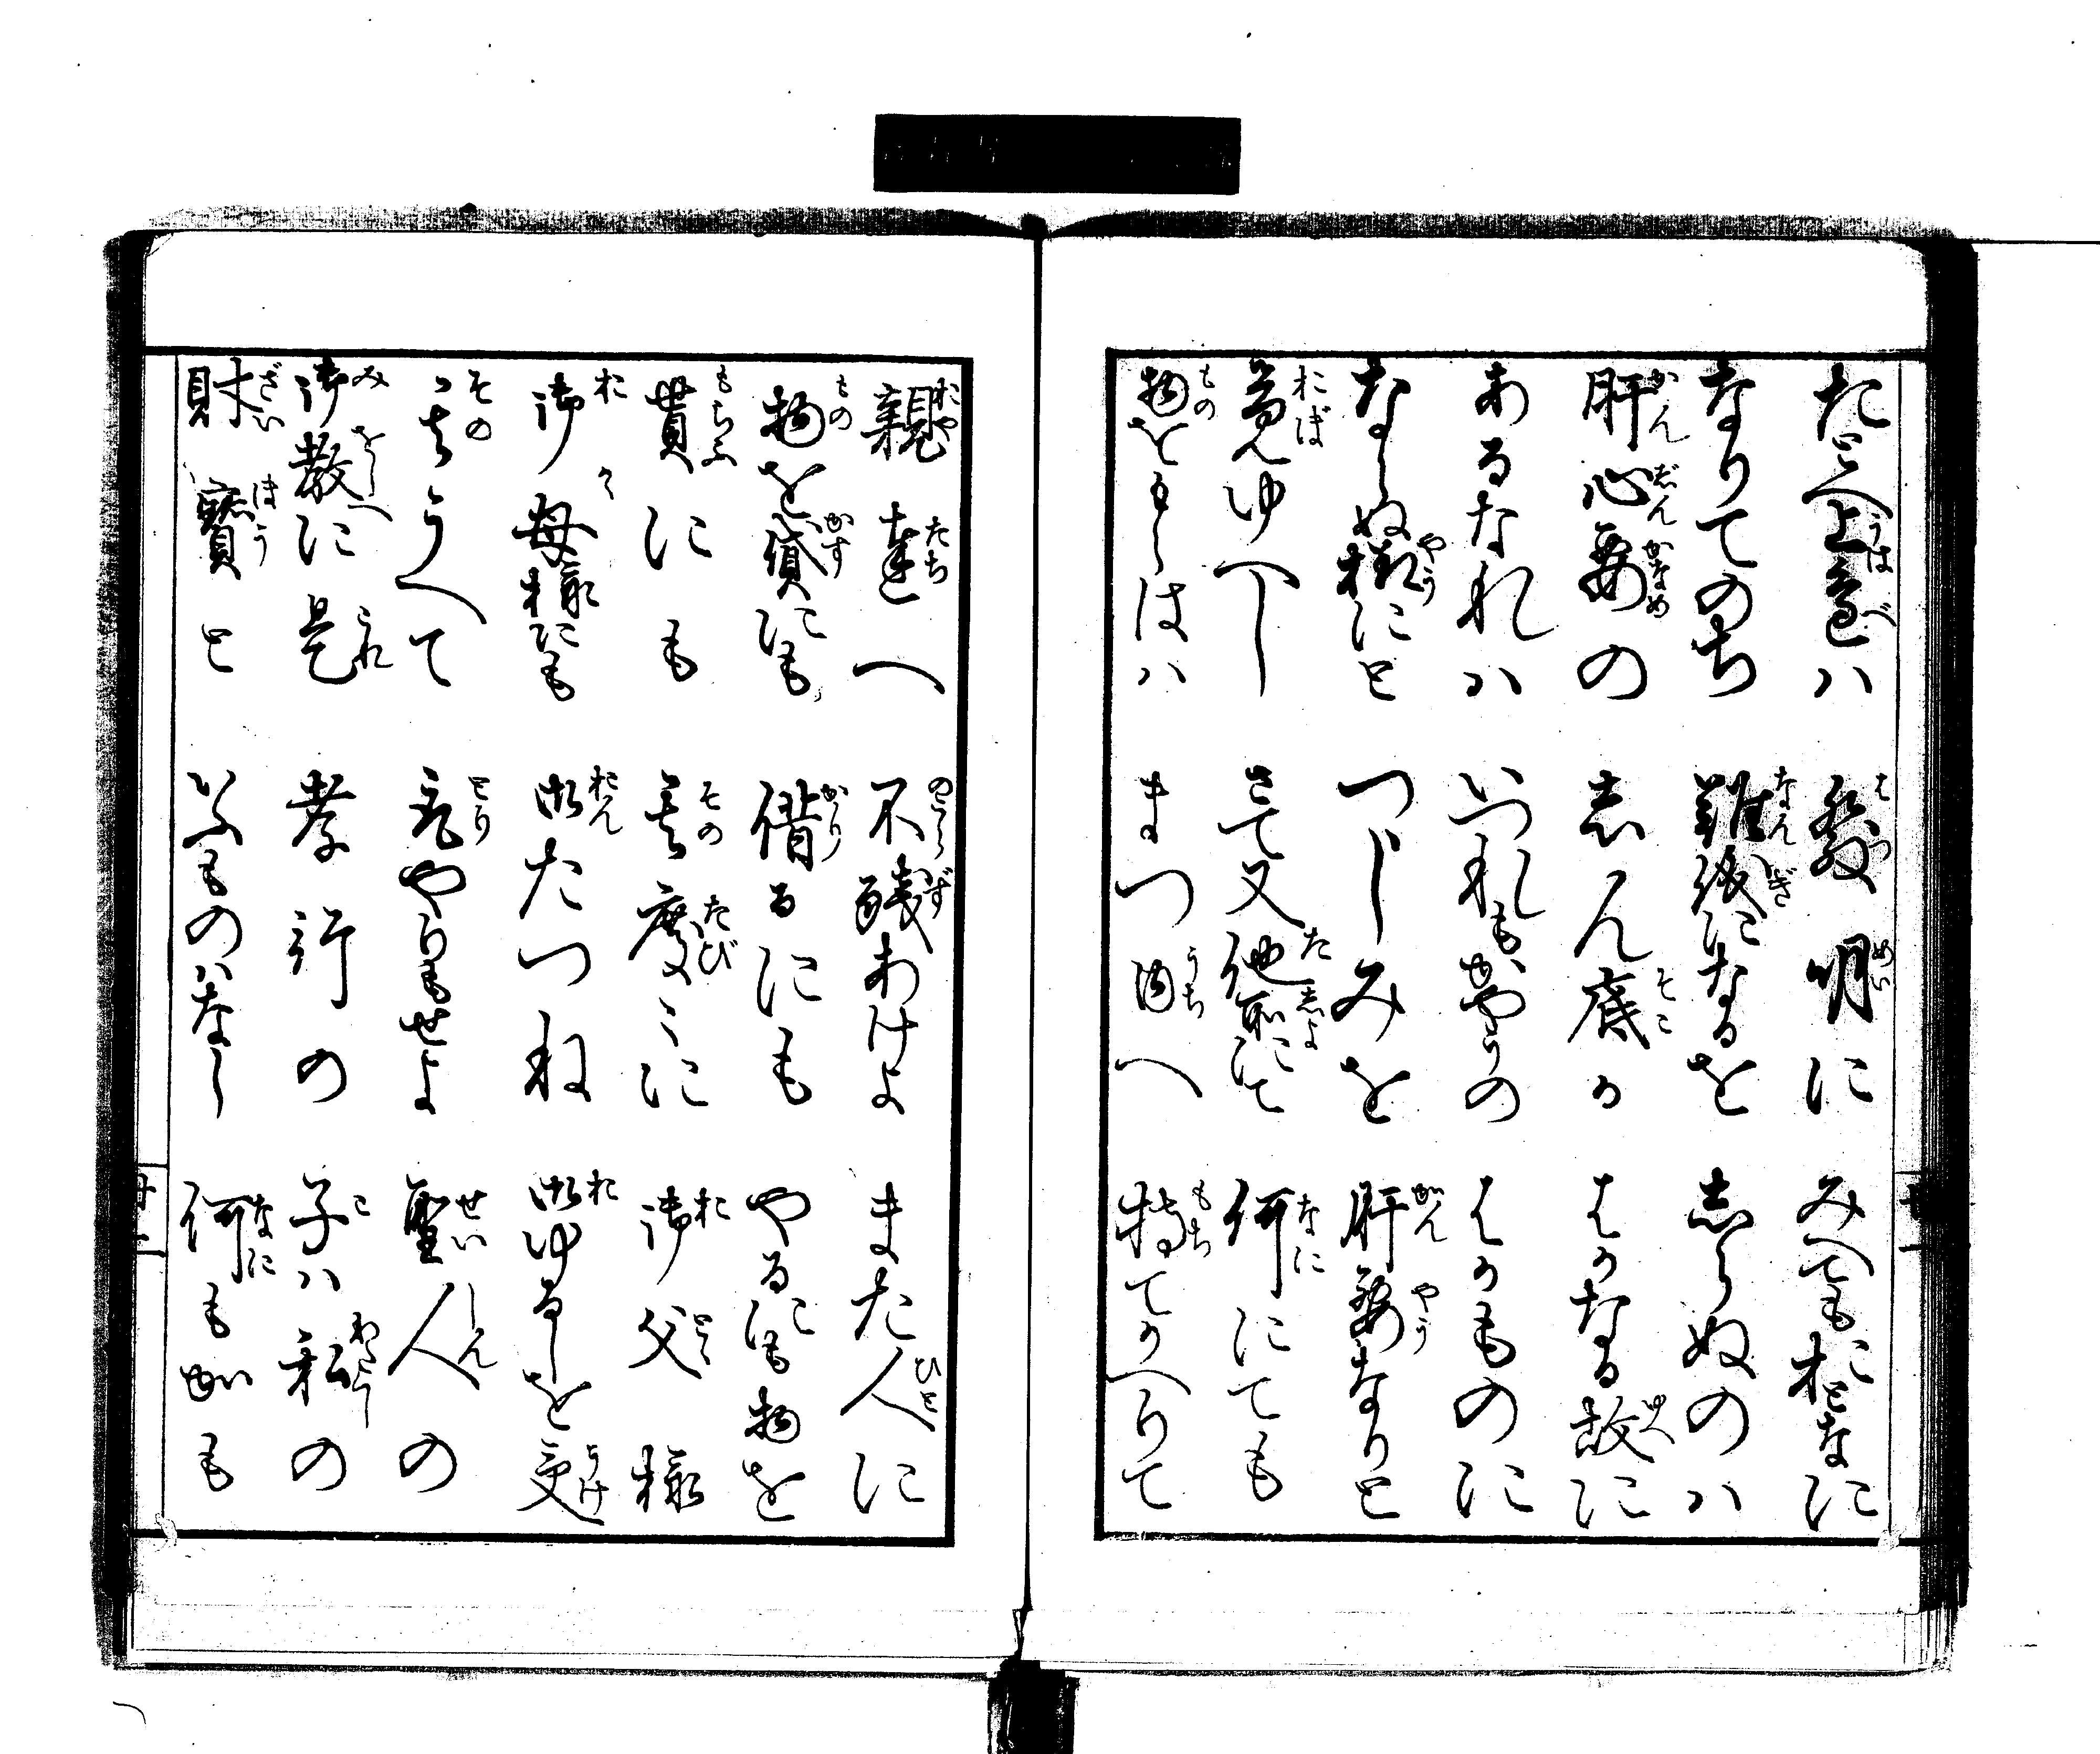 たとへ上邊ハ 發明に みへてもおとなに
なりてのち 難儀になるを志らぬのハ
肝心要の 志ん底か はかなる故に
あるなれハ いつれもかやうの はかものに
ならぬ様にと つゝしみを 肝要なりと
覚ゆへし さて又他所にて 何にても
物をもらはハ まつ内へ 持てかへりて
親達へ 不残あけよ また人に
物を貸にも 借るにも やるにも物を
貰にも 其度〻に 御父様
御母様にも 御たつね 御ゆるしを受
其うへて 取やりもせよ 聖人の
御教に是 孝行の 子ハ私の
財寶と いふものハなし 何も かも